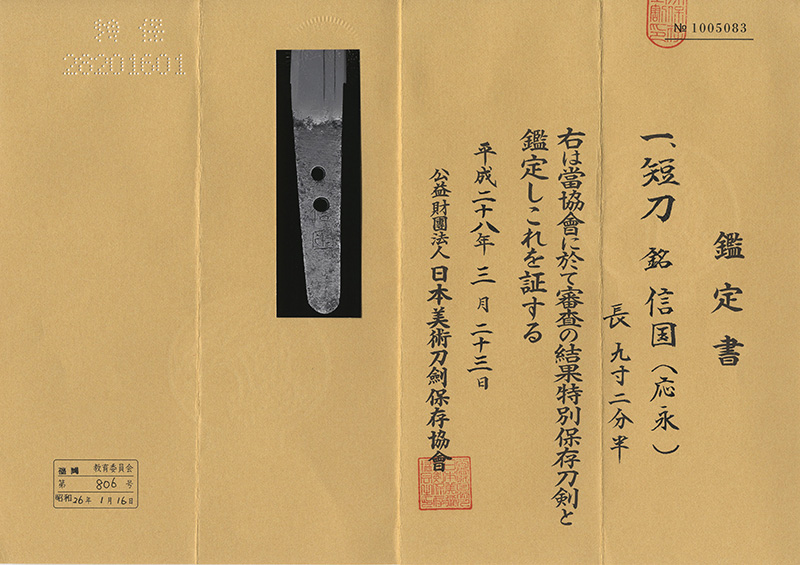 № 1005083
鑑定書
一、短刀 銘 信国(応永)
長 九寸二分半
右は當協會に於て審査の結果特別保存刀剣と
鑑定しこれを証する
平成二十八年 三月 二十三日
公益財團法人 日本美術刀劍保存協會
28201601
信国
教育委員会
第 806 号
昭和26年 1月16日